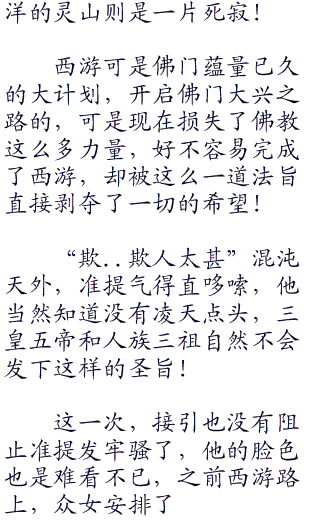 洋的灵山则是一片死寂！
西游可是佛门蕴量已久
的大计划，开启佛门大兴之
路的，可是现在损失了佛教
这么多力量，好不容易完成
了西游，却被这么一道法旨
直接剥夺了一切的希望！
“欺..欺人太甚”混沌
天外，准提气得直哆嗦，他
当然知道没有凌天点头，三
皇五帝和人族三祖自然不会
发下这样的圣旨！
这一次，接引也没有阻
止准提发牢骚了，他的脸色
也是难看不已，之前西游路
上，众女安排了